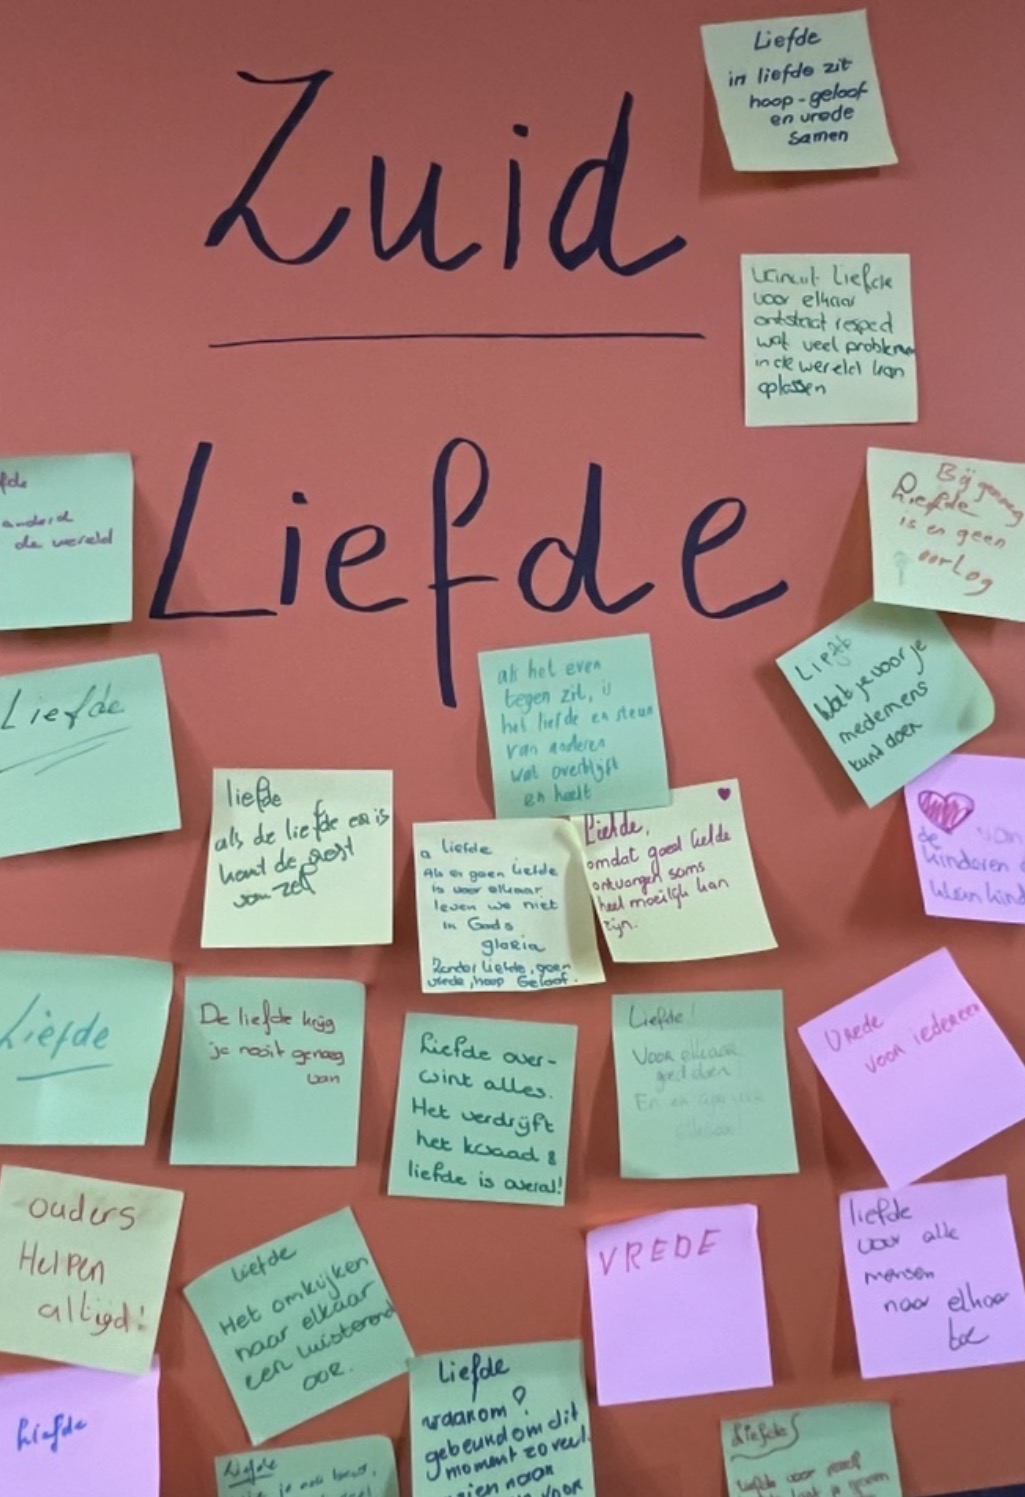 Zuid
Liefde
Liefde
in liefde zit
hoop-geloof
en vrede
samen
Liefde
voor elkaar
ontstaat respect
wat veel problemen
in de wereld kan
oplossen
fde
anderd
de wereld
Bij genoeg
Liefde
is er geen
oorlog
Liefde
als het even
tegen zit, is
het liefde en steun
van anderen
wat overblijft
en heelt
Wat je voor je
medemens
kunt doen
liefde
als de liefde er is
komt de rest
van zelf
liefde
Als er geen liefde
is voor elkaar
leven we niet
in Gods
gloria
Zonder liefde, geen
vrede, hoop Geloof.
Liefde,
omdat goed liefde
ontvangen soms
heel moeilijk kan
zijn.
de van
kinderen
kleinkind
Liefde
De liefde krijg
je nooit genoeg
van
Liefde over-
wint alles.
Het verdrijft
het kwaad &
liefde is overal!
Liefde!
Voor elkaar
goed doen
En er
elkaar
Vrede
voor iedereen
ouders
Helpen
altijd!
liefde
Het omkijken
naar elkaar
een luisterend
oor.
VREDE
liefde
voor alle
mensen
naar elkaar
toe
Liefde
liefde
waarom?
gebeurd om dit
moment zoveel
Liefde
Liefde